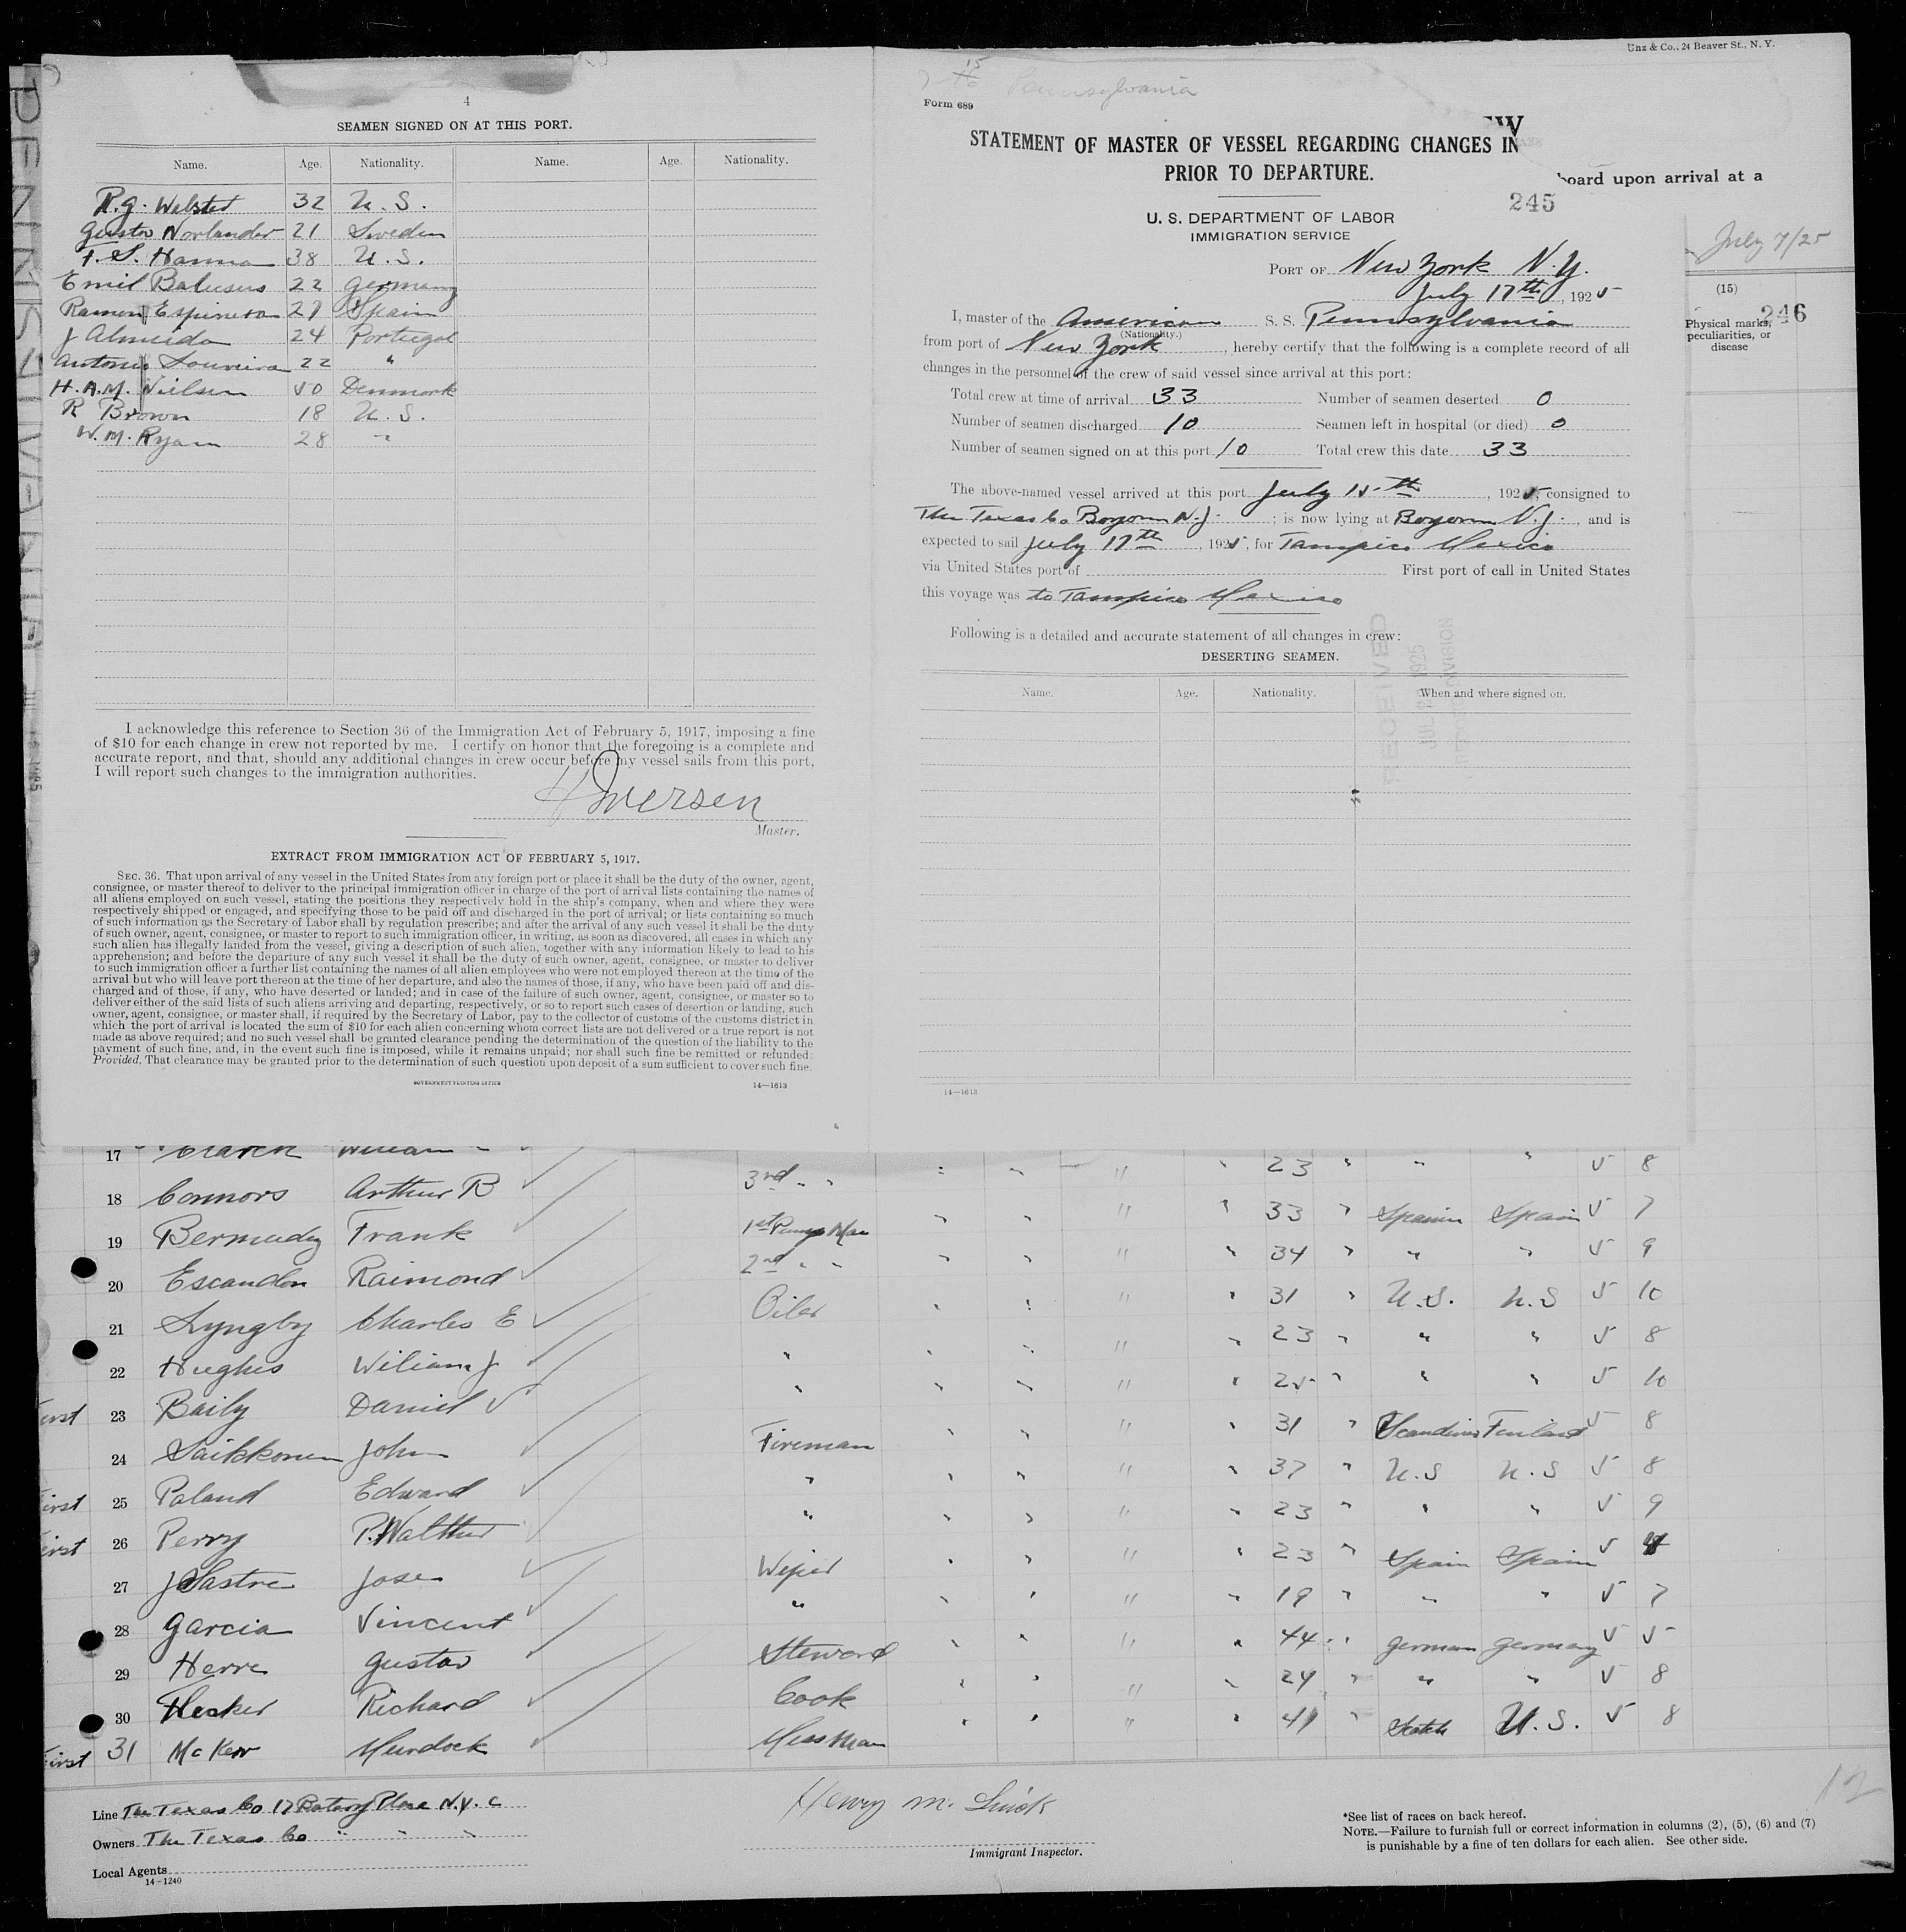 Unz & Co., 24 Beaver St., N. Y.
4
SEAMEN SIGNED ON AT THIS PORT.
Name. Age. Nationality. Name. Age. Nationality.
R.G. Webster 32 U. S.
Gustav Norlander 21 Sweden
F. S. Hanna 38 U. S.
Emil 22 Germany
Ramon Espineira 27 Spain
J Almeida 24 Portugal
Antonio 22 "
H. A. M. Nielsen 50 Denmark
R Brown 18 U. S.
W. M. Ryan 28 "
I acknowledge this reference to Section 36 of the Immigration Act of February 5, 1917, imposing a fine
of $10 for each change in crew not reported by me. I certify on honor that the foregoing is a complete and
accurate report, and that, should any additional changes in crew occur before my vessel sails from this port,
I will report such changes to the immigration authorities.
H Iversen
Master.
EXTRACT FROM IMMIGRATION ACT OF FEBRUARY 5, 1917.
SEC. 36. That upon arrival of any vessel in the United States from any foreign port or place it shall be the duty of the owner, agent,
consignee, or master thereof to deliver to the principal immigration officer in charge of the port of arrival lists containing the names of
all aliens employed on such vessel, stating the positions they respectively hold in the ship's company, when and where they were
respectively shipped or engaged, and specifying those to be paid off and discharged in the port of arrival; or lists containing so much
of such information as the Secretary of Labor shall by regulation prescribe; and after the arrival of any such vessel it shall be the duty
of such owner, agent, consignee, or master to report to such immigration officer, in writing, as soon as discovered, all cases in which any
such alien has illegally landed from the vessel, giving a description of such alien, together with any information likely to lead to his
apprehension; and before the departure of any such vessel it shall be the duty of such owner, agent, consignee, or master to deliver
to such immigration officer a further list containing the names of all alien employees who were not employed thereon at the time of the
arrival but who will leave port thereon at the time of her departure, and also the names of those, if any, who have been paid off and dis-
charged and of those, if any, who have deserted or landed; and in case of the failure of such owner, agent, consignee, or master so to
deliver either of the said lists of such aliens arriving and departing, respectively, or so to report such cases of desertion or landing, such
owner, agent, consignee, or master shall, if required by the Secretary of Labor, pay to the collector of customs of the customs district in
which the port of arrival is located the sum of $10 for each alien concerning whom correct lists are not delivered or a true report is not
made as above required; and no such vessel shall be granted clearance pending the determination of the question of the liability to the
payment of such fine, and, in the event such fine is imposed, while it remains unpaid; nor shall such fine be remitted or refunded:
Provided, That clearance may be granted prior to the determination of such question upon deposit of a sum sufficient to cover such fine.
GOVERNMENT PRINTING OFFICE 14—1613
Pennsylvania
Form 689
STATEMENT OF MASTER OF VESSEL REGARDING CHANGES IN
PRIOR TO DEPARTURE.
board upon arrival at a
245
U. S. DEPARTMENT OF LABOR
IMMIGRATION SERVICE
July 7/25
PORT OF New York N.Y.
July 17th, 1925
(15)
246
Physical marks, peculiarities, or disease
I, master of the American S. S. Pennsylvania
(Nationality.)
from port of New York, hereby certify that the following is a complete record of all
changes in the personnel of the crew of said vessel since arrival at this port:
Total crew at time of arrival 33 Number of seamen deserted 0
Number of seamen discharged 10 Seamen left in hospital (or died) 0
Number of seamen signed on at this port 10 Total crew this date 33
The above-named vessel arrived at this port July 15th, 1925, consigned to
The Texas Co Bayonne N.J.; is now lying at Bayonne N.J., and is
expected to sail July 17th, 1925, for Tampico Mexico
via United States port of First port of call in United States
this voyage was to Tampico Mexico
Following is a detailed and accurate statement of all changes in crew:
DESERTING SEAMEN.
Name. Age. Nationality. When and where signed on.
RECEIVED
14—1613
17 William 23 " " " 5 8
18 Connors Arthur B 3rd " " 33 " Spanish Spain 5 7
19 Bermudez Frank 1st Pump Man 34 " " " 5 9
20 Escandon Raimond 2nd " " 31 " U.S. U.S 5 10
21 Lyngby Charles E Oiler 23 " " " 5 8
22 Hughes Wiliam J " 25 " " " 5 10
First 23 Baily Daniel " 31 " Scandinav Finland 5 8
24 Saikkonen John Fireman 37 " U.S U.S 5 8
First 25 Poland Edward " 23 " " " 5 9
First 26 Perry P. Walther " 23 " Spain Spain 5
27 Sastre Jose Wiper 19 " " " 5 7
28 Garcia Vincent " 44 " German Germany 5 5
29 Herre Gustav Steward 24 " " " 5 8
30 Hecker Richard Cook 41 " Scotch U.S. 5 8
First 31 McKew Murdock Mess Man
12
Line The Texas Co 17 Batery Place N.Y.C
Owners The Texas Co " " "
Local Agents
14-1240
Henry M.
Immigrant Inspector.
*See list of races on back hereof.
NOTE.—Failure to furnish full or correct information in columns (2), (5), (6) and (7)
is punishable by a fine of ten dollars for each alien. See other side.